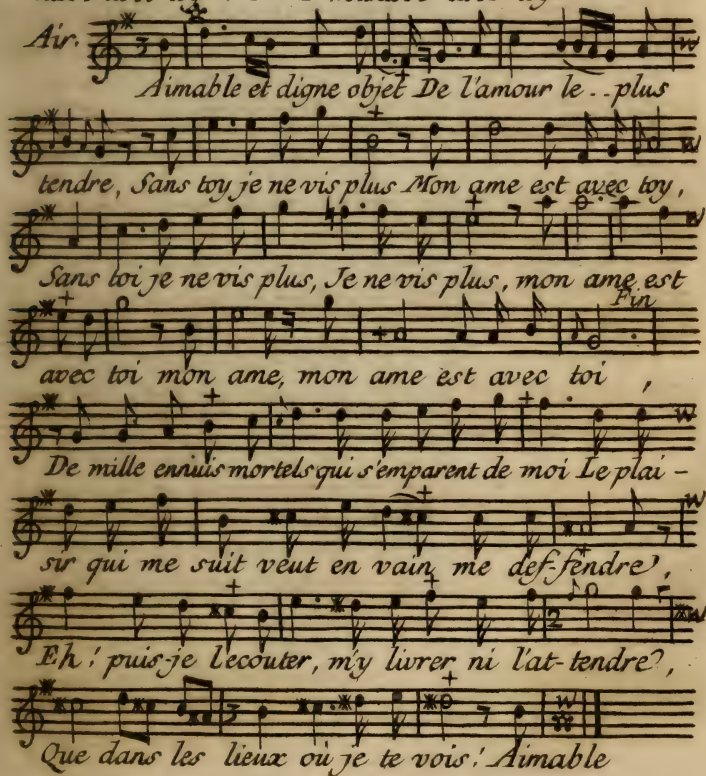 Air.
3
Aimable et digne objet De l'amour le .. plus
tendre, Sans toy je ne vis plus Mon ame est avec toy,
Sans toi je ne vis plus, Je ne vis plus, mon ame est
Fin
avec toi mon ame, mon ame est avec toi,
De mille ennuis mortels qui s'emparent de moi Le plai-
sir qui me suit veut en vain me def-fendre,
2
Eh! puis-je l'ecouter, m'y livrer ni l'at-tendre,
3
Que dans les lieux où je te vois! Aimable